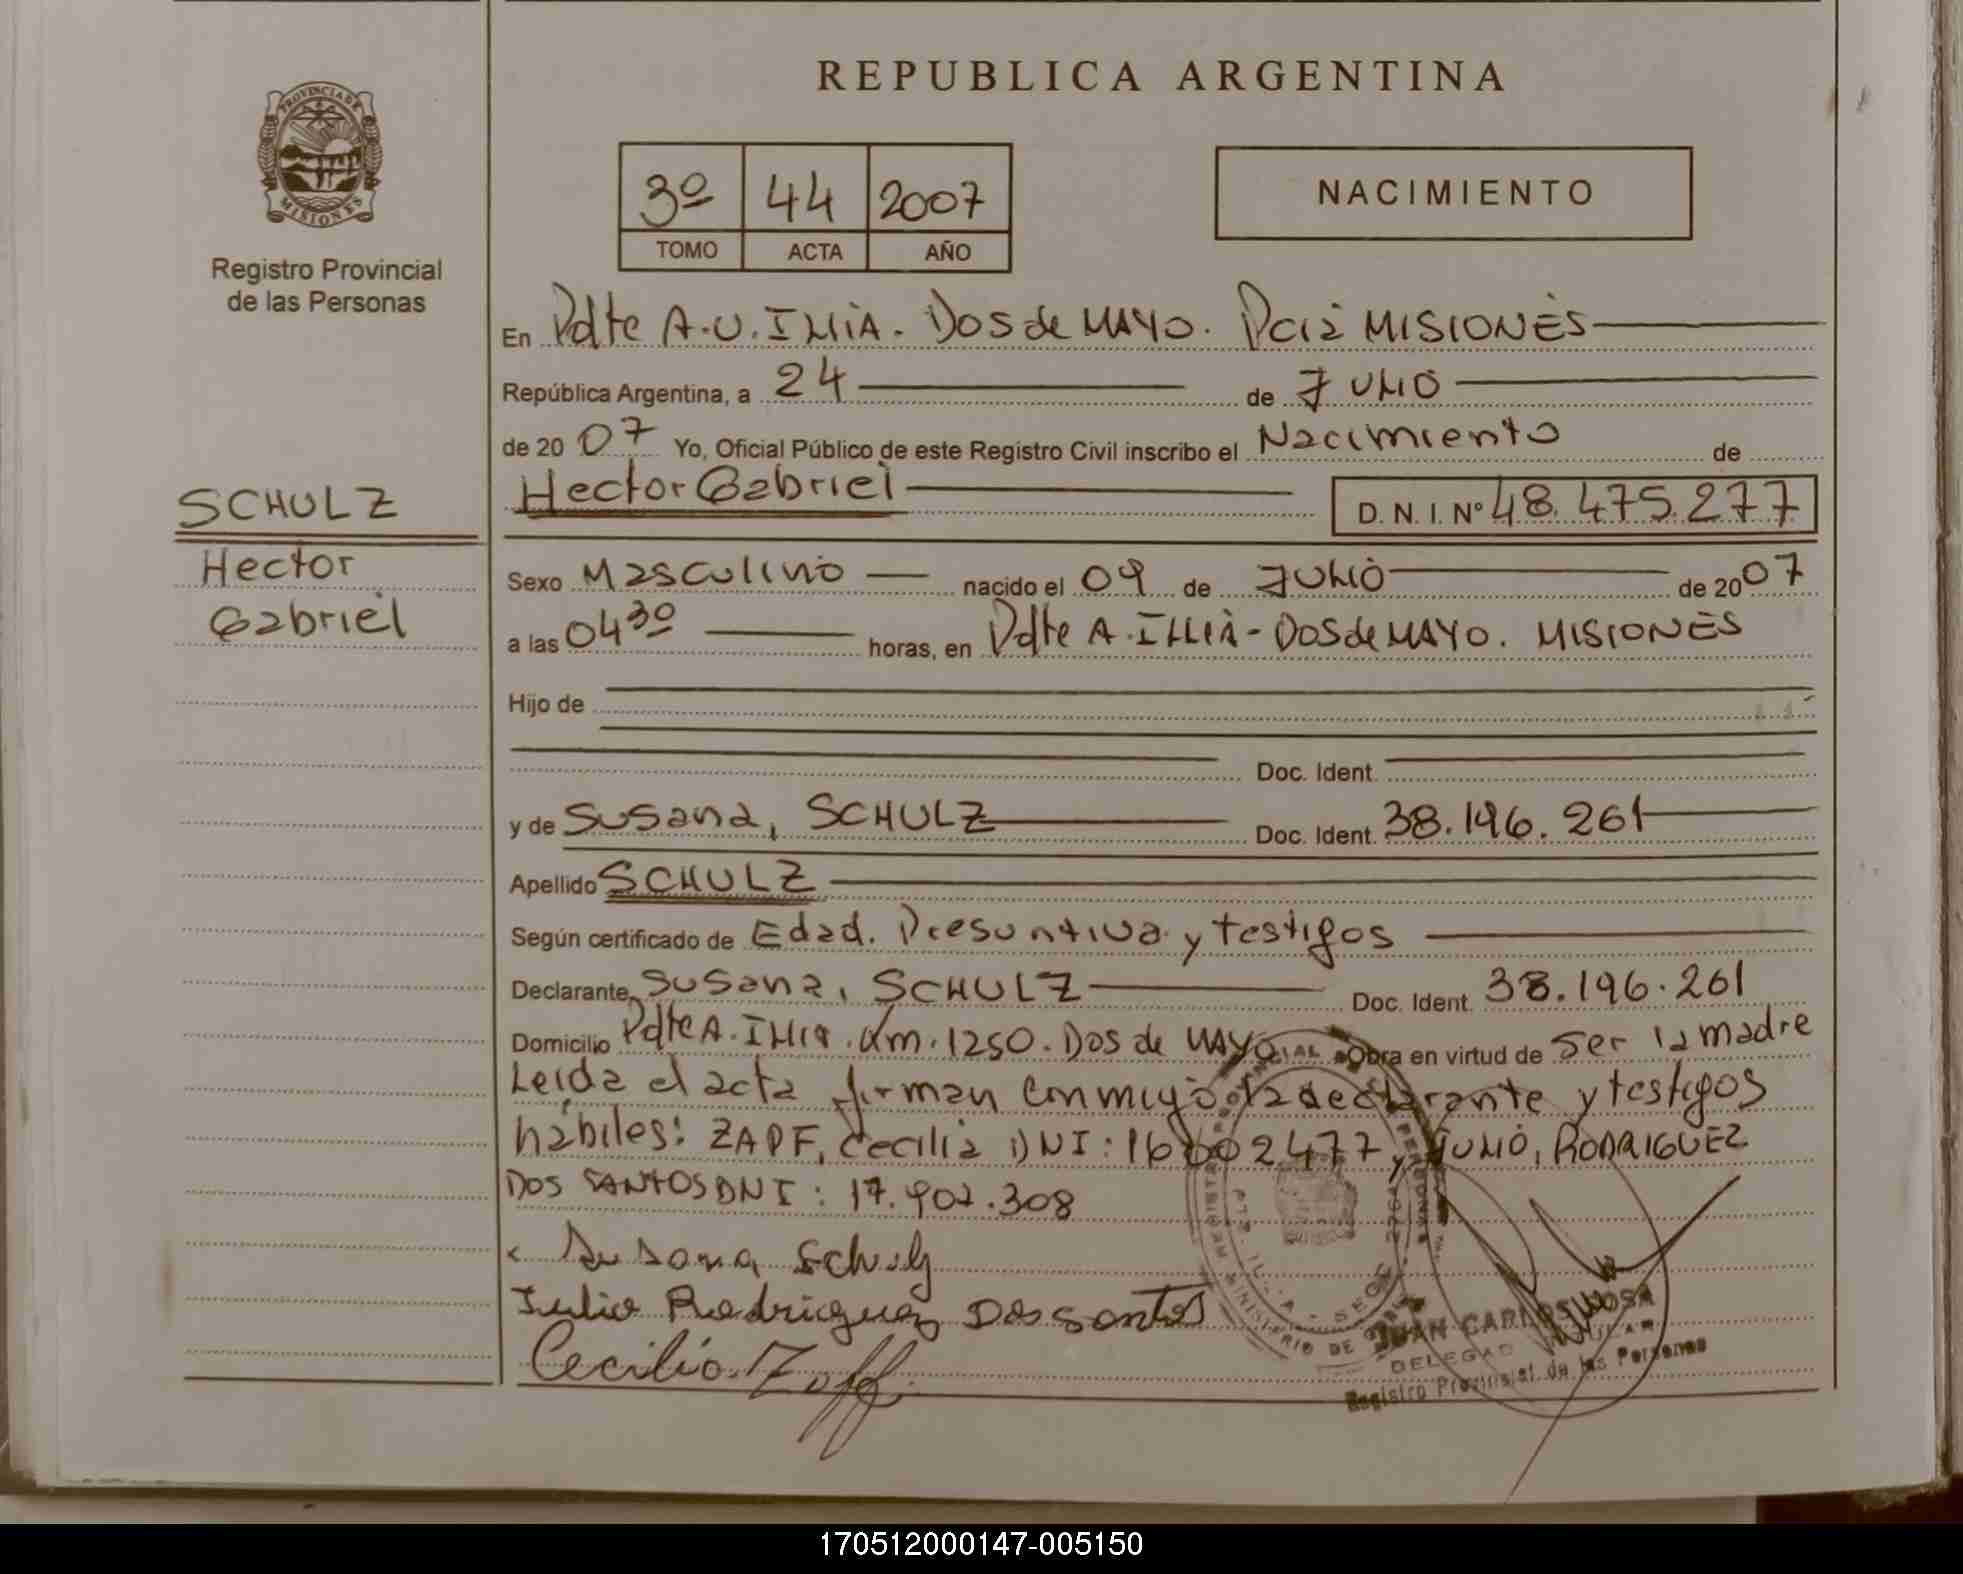 REPUBLICA ARGENTINA
PROVINCIA DE
MISIONES
Registro Provincial
de las Personas
3º 44 2007
TOMO ACTA AÑO
NACIMIENTO
En Pdte A.U. ILLIA. DOS de MAYO. Pciá MISIONES
República Argentina, a 24 de JULIO
de 2007 Yo, Oficial Público de este Registro Civil inscribo el Nacimiento de
Hector Gabriel D. N. I. Nº 48.475.277
SCHULZ
Hector
Gabriel
Sexo Masculino nacido el 09 de JULIO de 2007
a las 04 30 horas, en Pdte A. ILLIA - DOS de MAYO. MISIONES
Hijo de
Doc. Ident.
y de Susana, SCHULZ Doc. Ident. 38.196.261
Apellido SCHULZ
Según certificado de Edad. Presuntiva y testigos
Declarante Susana, SCHULZ Doc. Ident. 38.196.261
Domicilio Pdte A. ILLIA. Km. 1250. Dos de MAYO Obra en virtud de ser la madre
Leida el acta firman conmigo la declarante y testigos
hábiles: ZAPF, Cecilia DNI: 16602477 y JULIO, RODRIGUEZ
DOS SANTOS DNI: 17.907.308
Susana Schulz
Julio Rodriguez Dos santos
JUAN CARLOS
Cecilia
DELEGADO TITULAR
Registro Provincial de las Personas
170512000147-005150